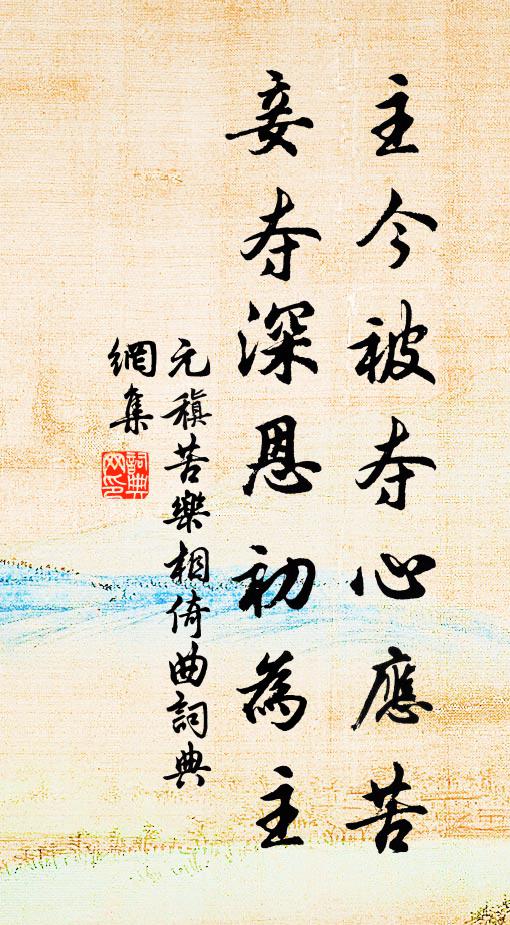 主今被夺心應苦
妾夺深恩初為主
元稹苦樂相倚曲詞典
網集
詞典
网印